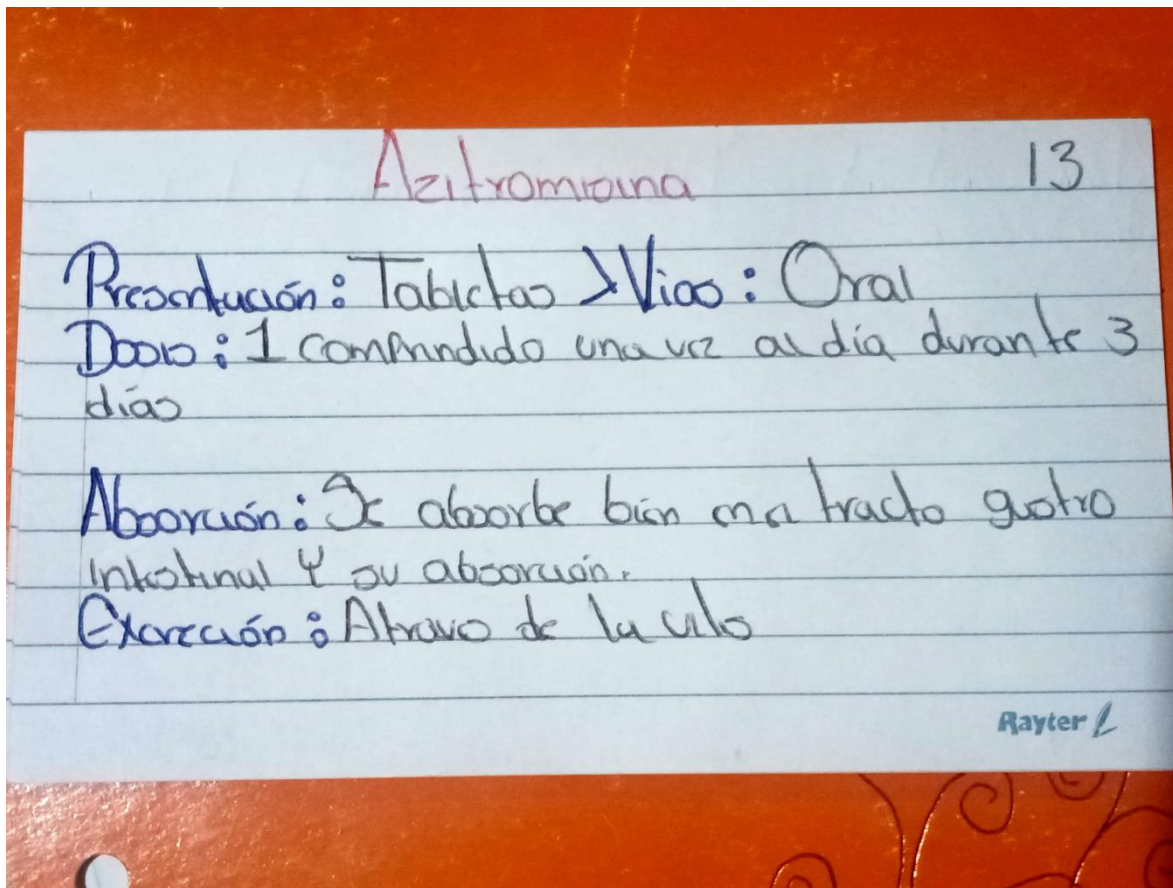 Azitromicina 13
Presentación: Tabletas > Vias: Oral
Dosis: 1 comprindido una vez al día durante 3
días
Absorción: Se absorbe bien en el tracto gastro
Intestinal Y su absorción.
Excreción: Atraves de la
Rayter